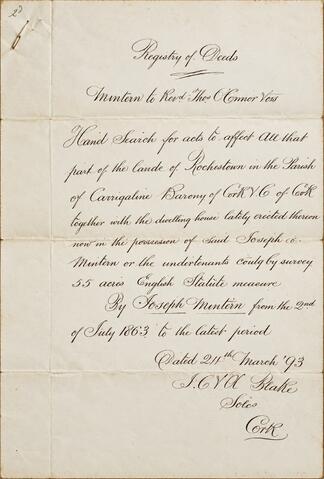 2d
Registry of Deeds
Mintern to Revd Thos O'Connor
Hand Search for acts to affect All that
part of the lands of Rochestown in the Parish
of Carrigaline Barony of Cork & C of Cork
together with the dwelling house lately erected thereon
now in the possession of said Joseph
Mintern or the undertenants contg by survey
55 acres English Statute measure
By Joseph Mintern from the 2nd
of July 1863 to the latest period
Dated 24th March '93
J. C & A Blake
Solrs
Cork